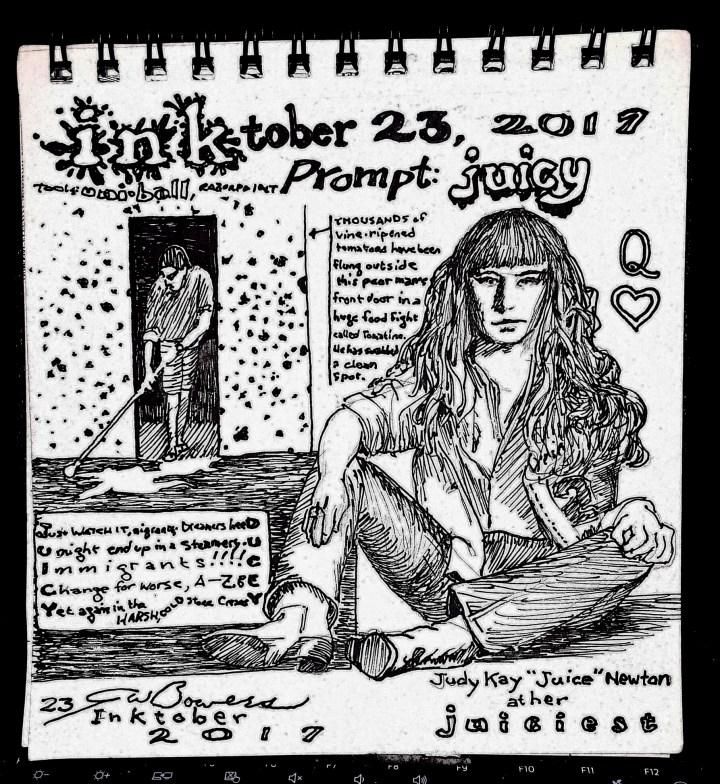 inktober 23, 2017
Prompt: juicy
Tools: uni-ball, RAZORPOINT
THOUSANDS of
vine-ripened
tomatoes have been
flung outside
this poor man's
front door in a
huge food fight
called Tomatina.
He has swabbed
a clean
spot.
Q
Just WATCH IT, migrants. Dreamers heeD
U might end up in a steamer,
Immigrants!!!!
Change for worse, A-Z,
Yet again in the
HARSH, COLD Stone
JUICY
Judy Kay "Juice" Newton
at her
juiciest
23 GW Bowers
Inktober
2017
F7
F8
F9
F10
F11
F12